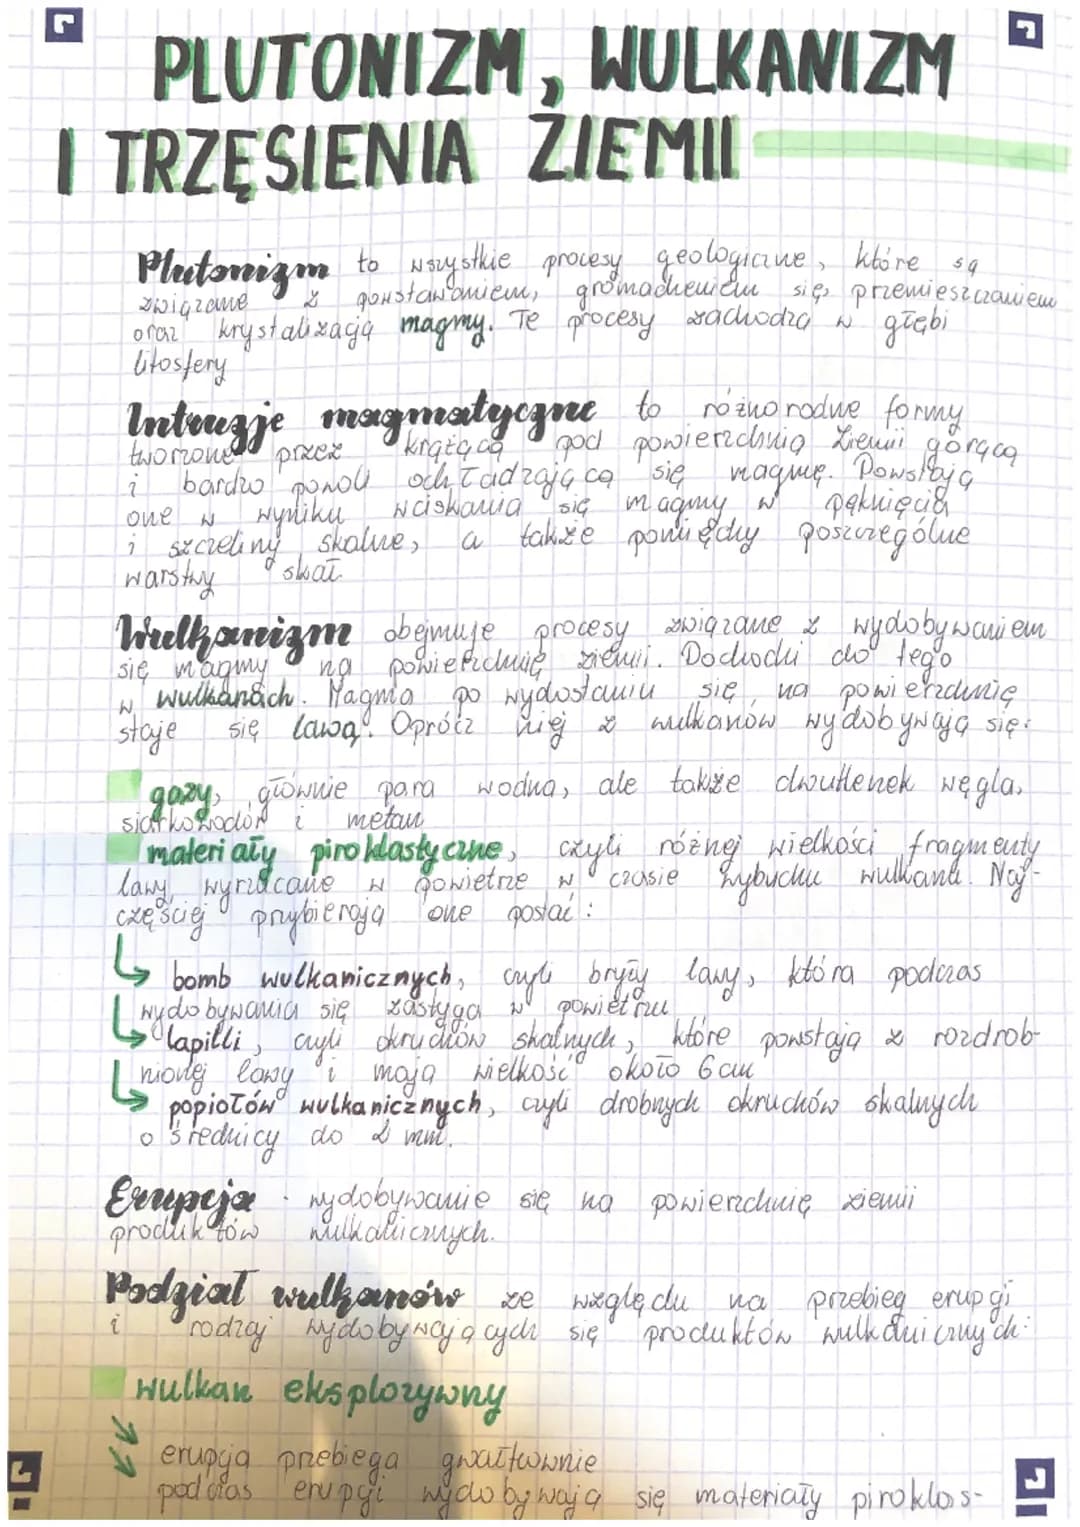 PLUTONIZM, WULKANIZM
I TRZĘSIENIA ZIEMII
Plutonizm to wszystkie procesy geologiczne, które są
związane z powstawaniem, gromadzeniem się, przemieszczaniem
oraz krystalizacją magmy. Te procesy zachodzą w głębi
litosfery
Intruzje magmatyczne to różnorodne formy
tworzone przez krążącą pod powierzchnią Ziemii gorącą
i bardzo powoli ochładzającą się magmę. Powstają
one w wyniku wciskania się magmy w pęknięcia
i szczeliny skalne, a także pomiędzy poszczególne
warstwy skał.
Wulkanizm obejmuje procesy związane z wydobywaniem
się magmy na powierzchnię ziemii. Dochodzi do tego
w wulkanach. Magma po wydostaniu się na powierzchnię
staje się lawą. Oprócz niej z wulkanów wydobywają się:
gazy, głównie para wodna, ale także dwutlenek węgla,
siarkowodór i metan
materiały piroklastyczne, czyli różnej wielkości fragmenty
lawy wyrzucane w powietrze w czasie wybuchu wulkanu. Naj-
częściej przybierają one postać:
bomb wulkanicznych, czyli bryły lawy, która podczas
wydobywania się zastyga w powietrzu
lapilli, czyli okruchów skalnych, które powstają z rozdrob-
nionej lawy i mają wielkość około 6cm
popiołów wulkanicznych, czyli drobnych okruchów skalnych
o średnicy do 2 mm.
Erupcja - wydobywanie się na powierzchnię ziemii
produktów wulkanicznych.
Podział wulkanów ze względu na przebieg erupcji
i rodzaj wydobywających się produktów wulkanicznych:
wulkan eksplozywny
erupcja przebiega gwałtownie
podczas erupcji wydobywają się materiały piroklas-